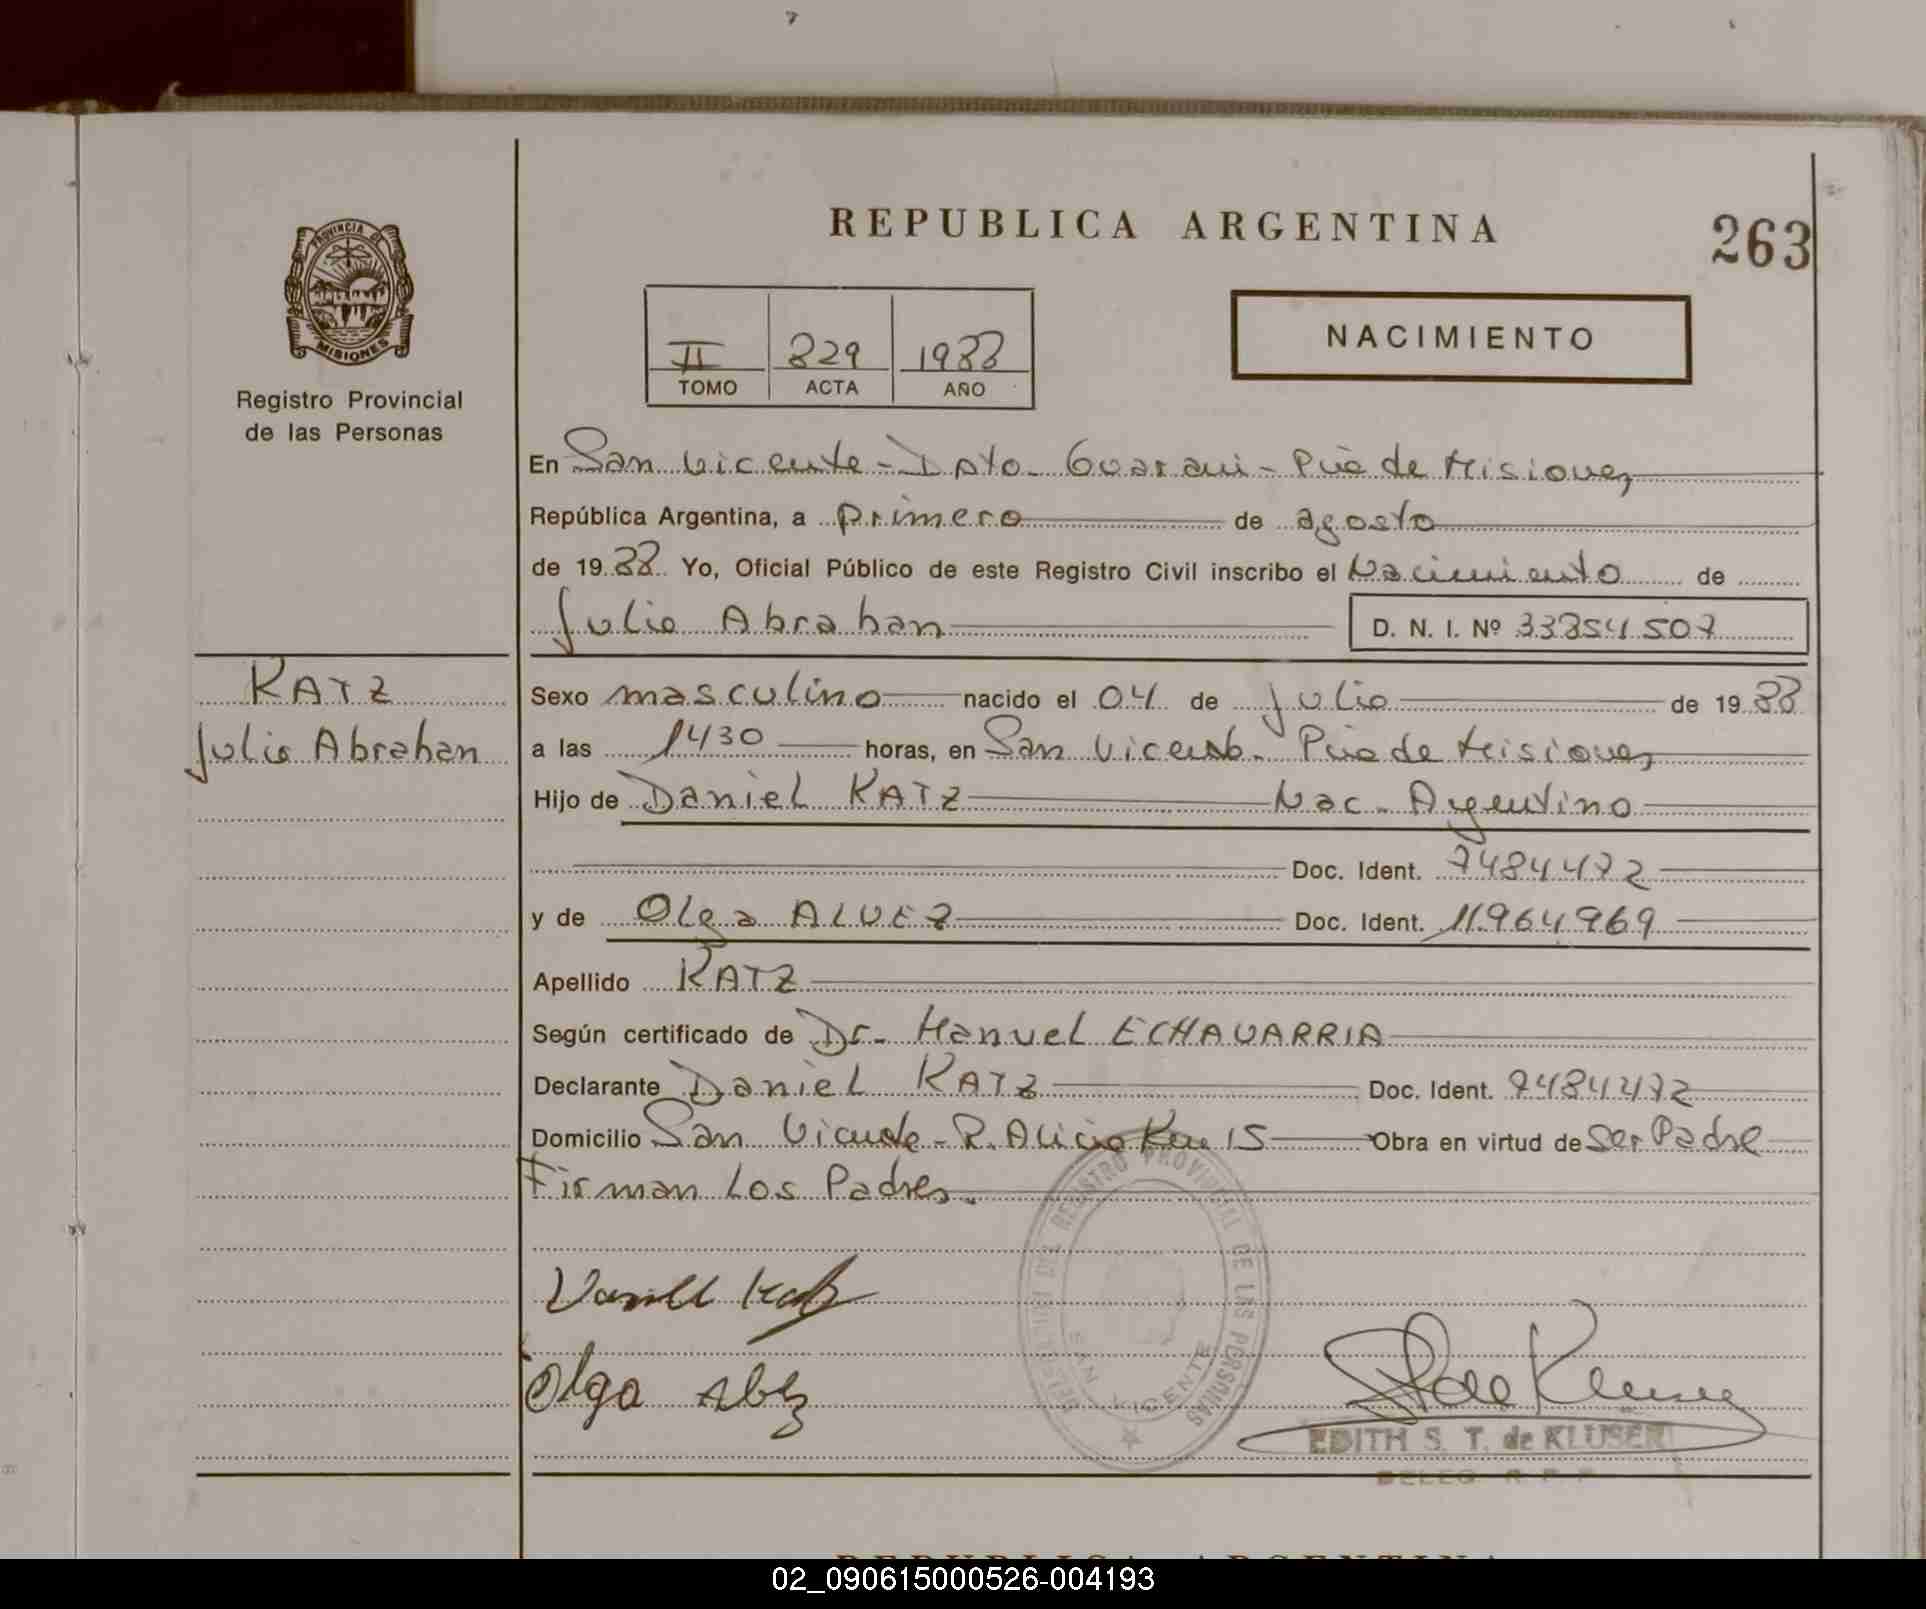 REPUBLICA ARGENTINA
263
PROVINCIA DE
MISIONES
Registro Provincial
de las Personas
II 829 1988
TOMO ACTA AÑO
NACIMIENTO
En San Vicente - Dpto. Guarani - Pcia de Misiones
República Argentina, a primero de agosto
de 19 88 Yo, Oficial Público de este Registro Civil inscribo el Nacimiento de
Julio Abrahan D. N. I. Nº 33854507
KATZ
Julio Abrahan
Sexo masculino nacido el 04 de Julio de 19 88
a las 1430 horas, en San Vicente. Pcia de Misiones
Hijo de Daniel KATZ Nac. Argentino
Doc. Ident. 7484472
y de Olga ALVEZ Doc. Ident. 11964969
Apellido KATZ
Según certificado de Dr. Manuel ECHAVARRIA
Declarante Daniel KATZ Doc. Ident. 7484472
Domicilio San Vicente - P. Alicia Km 15 Obra en virtud de Ser Padre
Firman Los Padres.
Daniel Katz
Olga Alvez
DEL REGISTRO PROVINCIAL DE LAS PERSONAS
SAN VICENTE
EDITH S. T. de KLUSER
DELEG. R. P. P.
REPUBLICA ARGENTINA
02_090615000526-004193